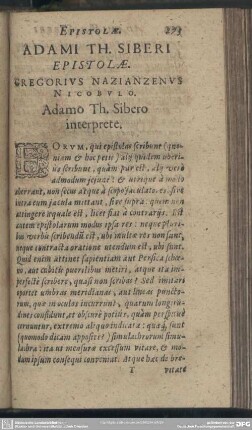 EPISTOLÆ. 273
ADAMI TH. SIBERI
EPISTOLÆ.
GREGORIVS NAZIANZENVS
NICOBVLO.
Adamo Th. Sibero
interprete.
EORVM, qui epistolas scribunt (quo-
niam & hoc petis) alij quidem uberi-
us scribunt, quàm par est, alij verò
admodum jejunè: & utriq; à modo
aberrant, non secus atque à scopo jaculantes, sive
intra eum jacula mittant, sive supra: quem non
attingere æquale est, licet fiat à contrarijs. Est
autem epistolarum modus ipsa res: neque pluri-
bus verbis scribendum est, ubi multæ res non sunt,
neque contracta oratione utendum est, ubi sunt.
Quid enim attinet sapientiam aut Persica schœ-
no, aut cubitis puerilibus metiri, atque ita im-
perfectè scribere, quasi non scribas? Sed imitari
oportet umbras meridianas, aut lineas puncto-
rum, quæ in oculos incurrunt, quarum longitu-
dines considunt, et obscurè potiùs, quàm perspicuè
cernuntur, extremo aliquo indicata: quæq; sunt
(quomodo dicam appositè?) simulachrorum simu-
lachra: ita ut mensuræ excessum vitare, & mo-
dum ipsum consequi conveniat. Atque hæc de bre-
T vitate